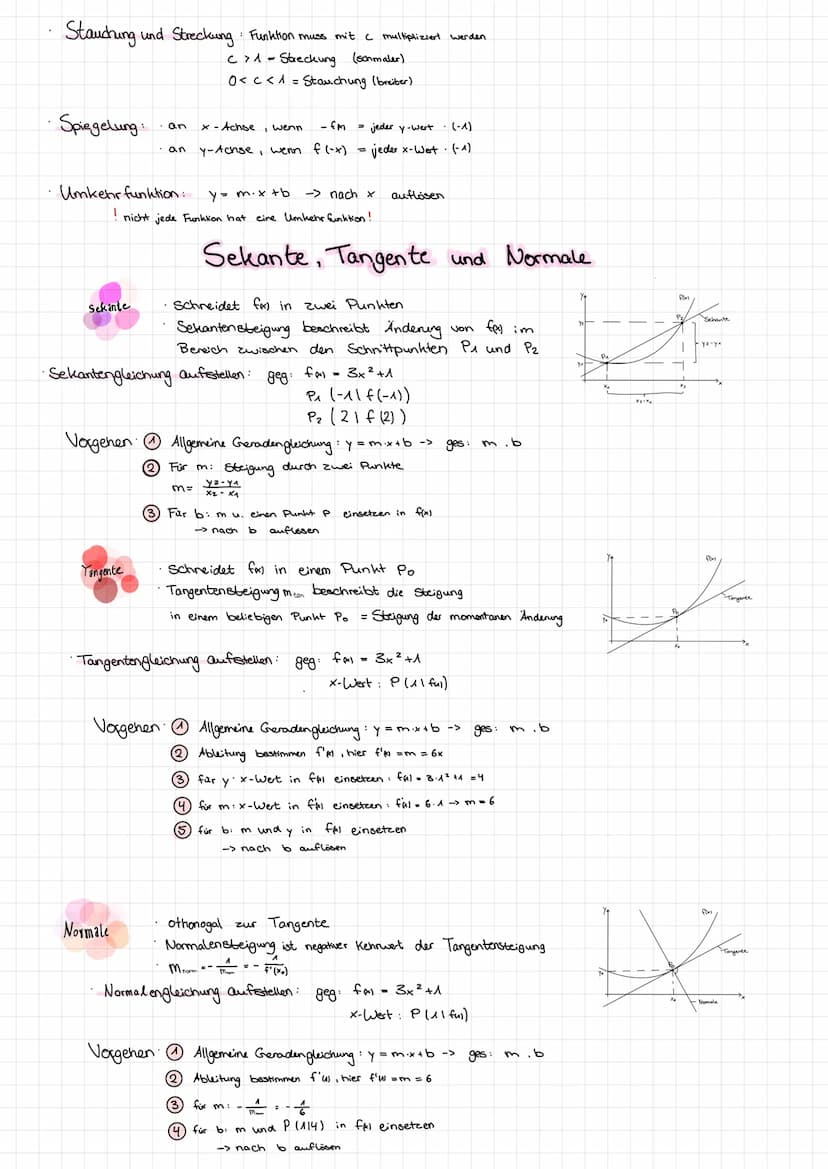 · Stauchung und Streckung : Funktion muss mit c multipliziert werden
c > 1 – Streckung (schmaler)
0 < c < 1 = Stauchung (breiter)
· Spiegelung: · an x-Achse, wenn -f(x) = jeder y-Wert · (-1)
· an y-Achse, wenn f(-x) = jeder x-Wert · (-1)
· Umkehrfunktion: y = m·x+b -> nach x auflösen
! nicht jede Funktion hat eine Umkehrfunktion!
Sekante, Tangente und Normale
Sekante
· Schneidet f(x) in zwei Punkten
· Sekantensteigung beschreibt Änderung von f(x) im
Bereich zwischen den Schnittpunkten P1 und P2
· Sekantengleichung aufstellen: geg: f(x) = 3x²+1
P1 (-1|f(-1))
P2 (2|f(2))
Vorgehen: ① Allgemeine Geradengleichung: y = m·x+b -> ges: m, b
② Für m: Steigung durch zwei Punkte
m= y2-y1 / x2-x1
③ Für b: m u. einen Punkt P einsetzen in f(x)
-> nach b auflösen
f(x)
Sekante
P2
P1
y2-y1
x2-x1
Tangente
· Schneidet f(x) in einem Punkt P0
· Tangentensteigung mtan beschreibt die Steigung
in einem beliebigen Punkt P0 = Steigung der momentanen Änderung
· Tangentengleichung aufstellen: geg: f(x) = 3x²+1
x-Wert: P(1|f(1))
Vorgehen: ① Allgemeine Geradengleichung: y = m·x+b -> ges: m, b
② Ableitung bestimmen f'(x), hier f'(x) = m = 6x
③ für y: x-Wert in f(x) einsetzen: f(1) = 3·1²+1 = 4
④ für m: x-Wert in f'(x) einsetzen: f'(1) = 6·1 -> m = 6
⑤ für b: m und y in f(x) einsetzen
-> nach b auflösen
f(x)
Tangente
P0
x0
Normale
· othonogal zur Tangente
· Normalensteigung ist negativer Kehrwert der Tangentensteigung
· mnorm = - 1/mtan = - 1/f'(x0)
· Normalengleichung aufstellen: geg: f(x) = 3x²+1
x-Wert: P(1|f(1))
Vorgehen: ① Allgemeine Geradengleichung: y = m·x+b -> ges: m, b
② Ableitung bestimmen f'(x), hier f'(x) = m = 6
③ für m: - 1/m = - 1/6
④ für b: m und P(1|4) in f(x) einsetzen
-> nach b auflösen
f(x)
Tangente
P0
x0
Normale